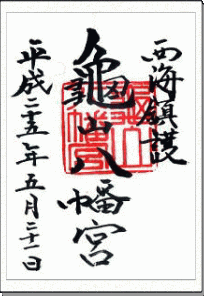 西海鎮護
龜山八幡宮
平成二十五年五月二十二日